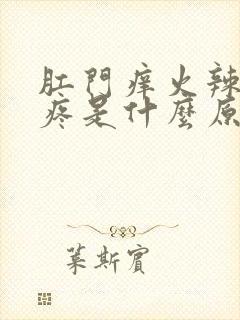 肛門痒火辣
疼是什麼原
葉斯賓